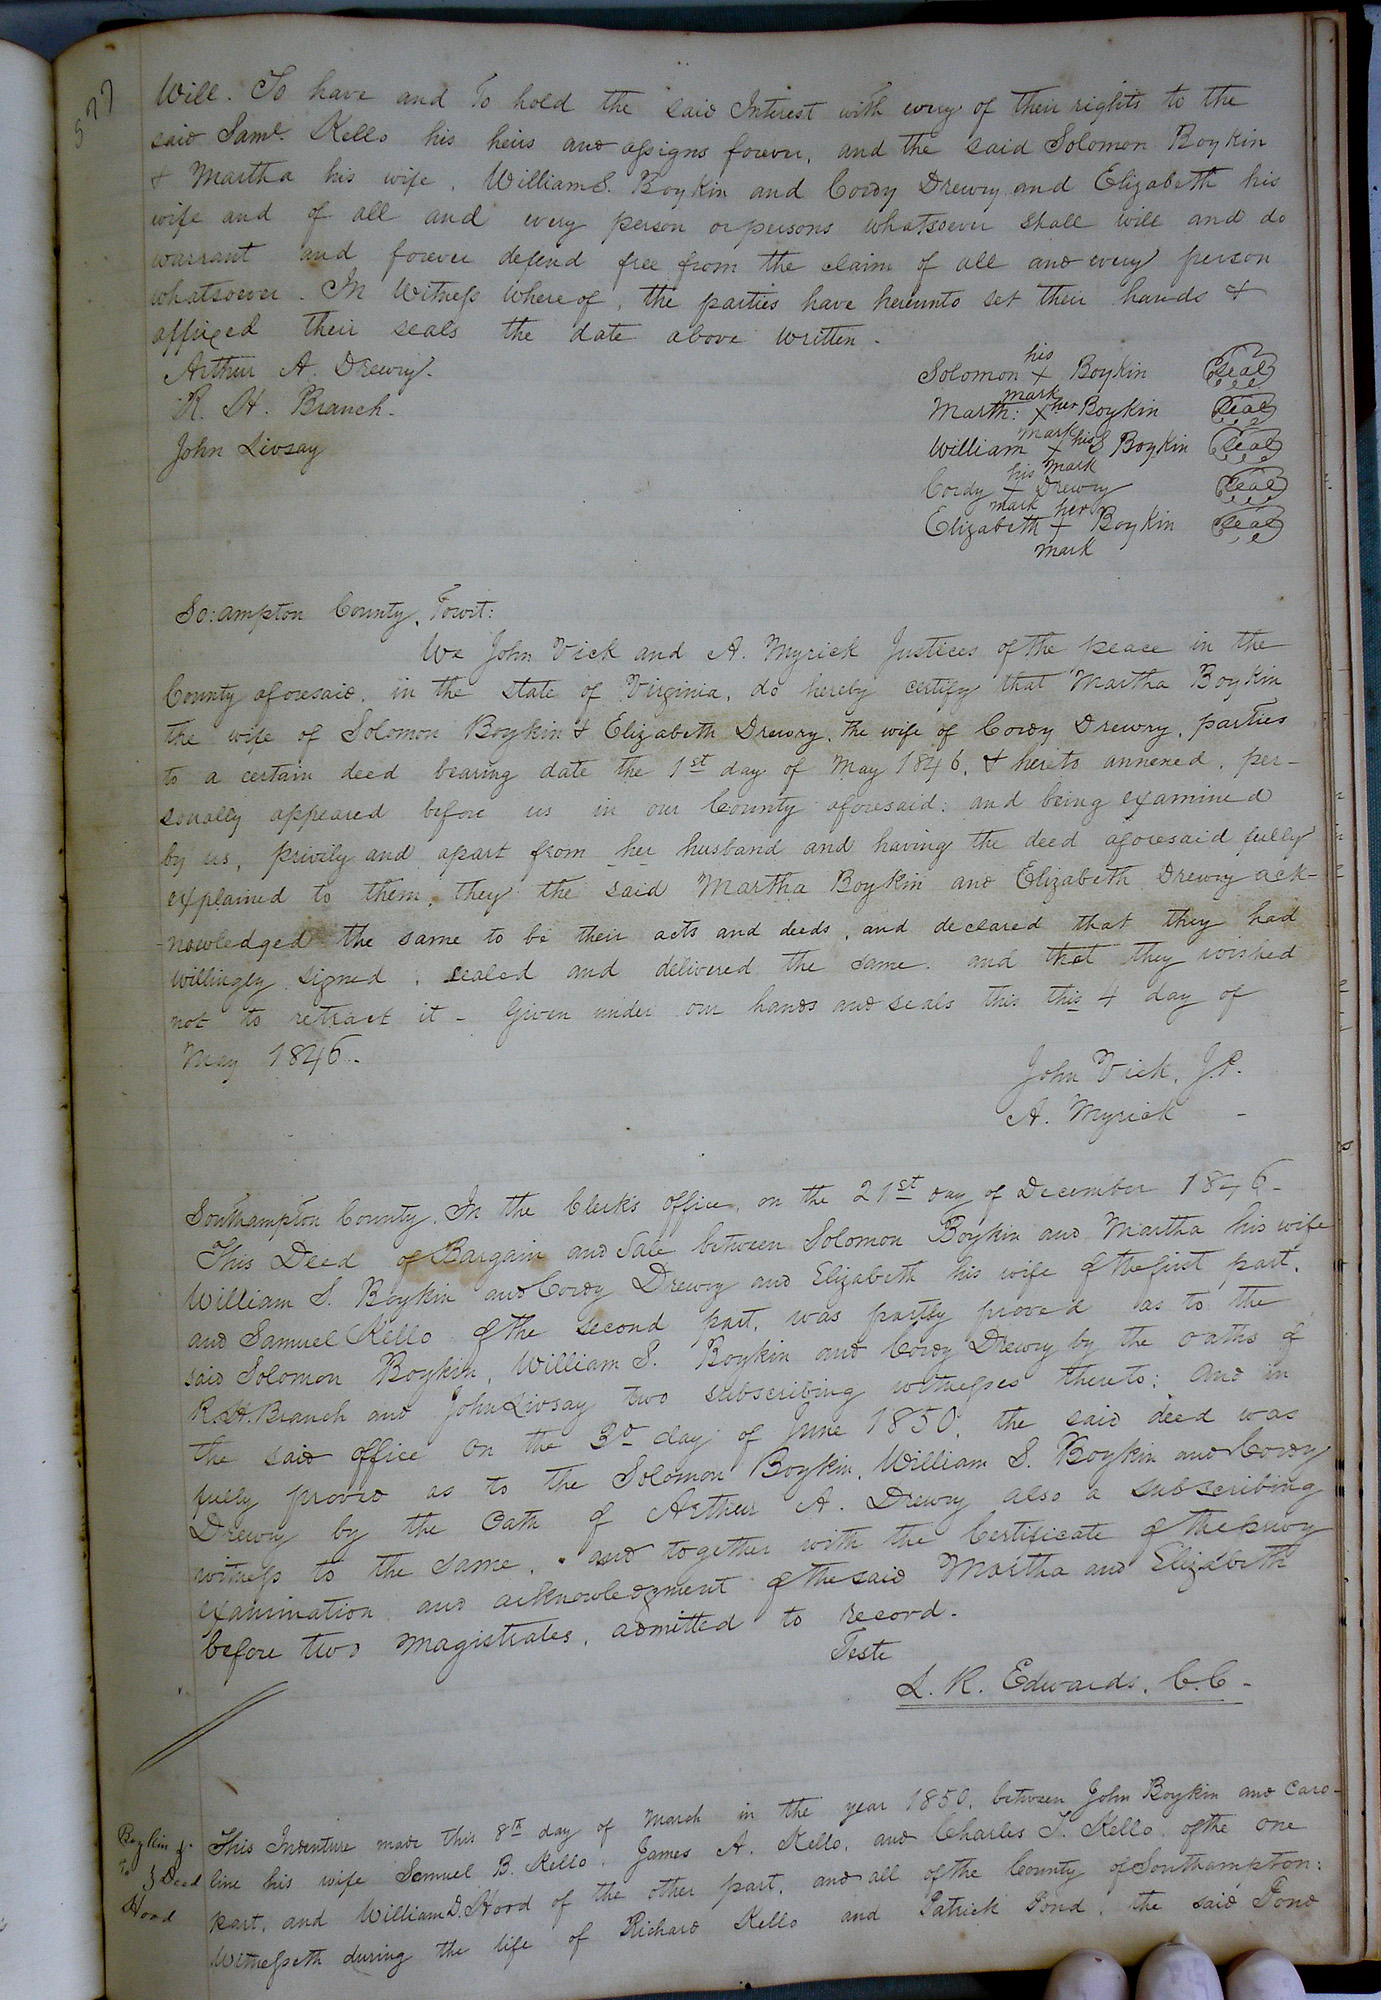 577
Will. To have and To hold the said Interest with every of their rights to the
said Saml. Kello his heirs and assigns forever, and the said Solomon Boykin
& Martha his wife, William S. Boykin and Cordy Drewry and Elizabeth his
wife and of all and every person or persons whatsoever shall will and do
warrant and forever defend free from the claim of all and every person
whatsoever. In Witness Whereof, the parties have hereunto set their hands &
affixed their seals the date above written.
Arthur A. Drewry.
R. H. Branch.
John Livsay
his
Solomon x Boykin Seal
mark
Marth: x her Boykin Seal
mark
William x his S Boykin Seal
his mark
Cordy x Drewry Seal
mark her
Elizabeth x Boykin Seal
mark
So:ampton County, Towit:
We John Vick and A. Myrick Justices of the peace in the
County aforesaid, in the state of Virginia, do hereby certify that Martha Boykin
the wife of Solomon Boykin & Elizabeth Drewry, the wife of Cordy Drewry, parties
to a certain deed bearing date the 1st day of May 1846, & hereto annexed, per-
sonally appeared before us in our County aforesaid: and being examined
by us, privily and apart from her husband and having the deed aforesaid fully
explained to them, they the said Martha Boykin and Elizabeth Drewry ack-
nowledged the same to be their acts and deeds, and declared that they had
willingly signed, sealed and delivered the same, and that they wished
not to retract it - Given under our hands and seals this this 4 day of
May 1846.
John Vick, J.P.
A. Myrick -
Southampton County. In the Clerks office, on the 21st day of December 1846-
This Deed of Bargain and Sale between Solomon Boykin and Martha his wife
William S. Boykin and Cordy Drewry and Elizabeth his wife of the first part,
and Samuel Kello of the second part, was partly proved as to the
said Solomon Boykin, William S. Boykin and Cordy Drewry by the oaths of
R. H. Branch and John Livsay two subscribing witnesses thereto: And in
the said office on the 3d day of June 1850, the said deed was
fully proved as to the Solomon Boykin, William S. Boykin and Cordy
Drewry by the Oath of Arthur A. Drewry also a subscribing
witness to the same, and together with the Certificate of the privy
examination and acknowledgment of the said Martha and Elizabeth
before two magistrates, admitted to record.
Teste
L. R. Edwards, C.C.
Boykin &
To } Deed
Hood
This Indenture made this 8th day of March in the year 1850, between John Boykin and Caro-
line his wife Samuel B. Kello, James A. Kello, and Charles T. Kello of the one
part, and William D. Hood of the other part, and all of the County of Southampton:
Witnesseth during the life of Richard Kello and Patrick Pond, the said Pond